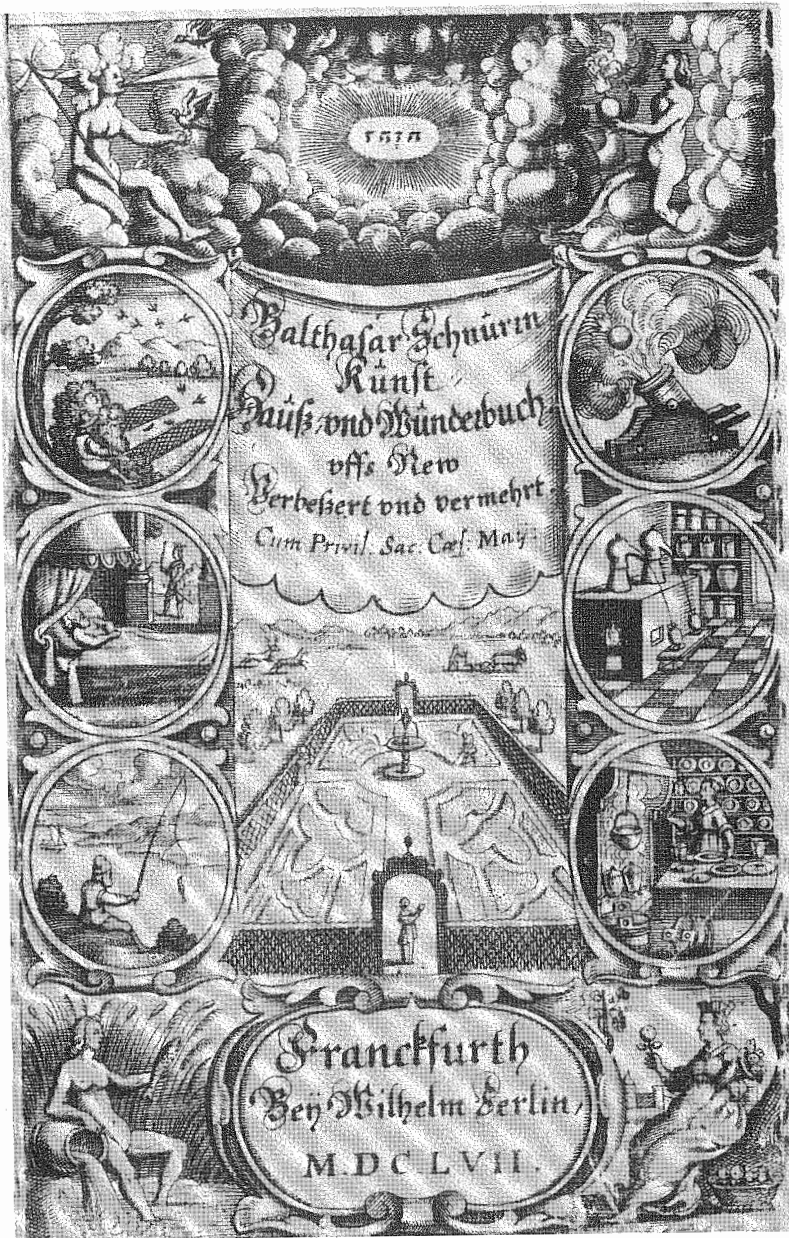 יהוה
Balthasar Schnürrn
Kunst
Hauß vnd Wunderbuch
vffs New
Verbeßert vnd vermehrt.
Cum Privil. Sac. Cæs. May.
Franckfurth
Bey Wilhelm Serlin,
M.DC LVII.